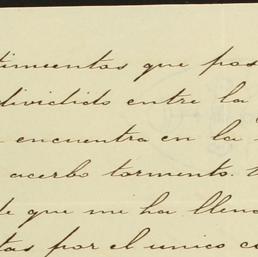 timientos que pas
dividido entre la
encuentra en la
acerbo tormento.
de que me ha llena
tas por el unico c